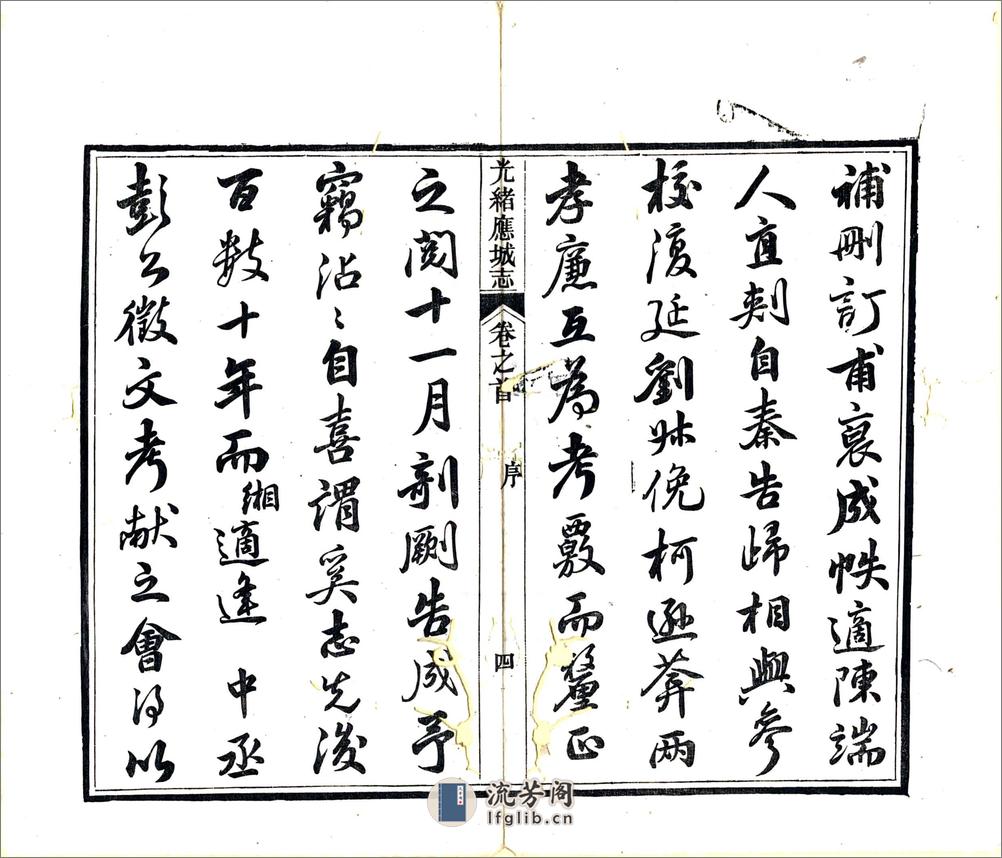 補刪訂甫裒成帙適陳端
人直刺自秦告歸相與參
校復延劉叔俛柯遜菴兩
孝廉互為考覈而釐正
光緒應城志
卷之首
序
四
之閱十一月剞劂告成予
竊沾〻自喜謂奚志先後
百數十年而緗適逢 中丞
彭公徵文考献之會得以
流芳阁
lfglib.cn